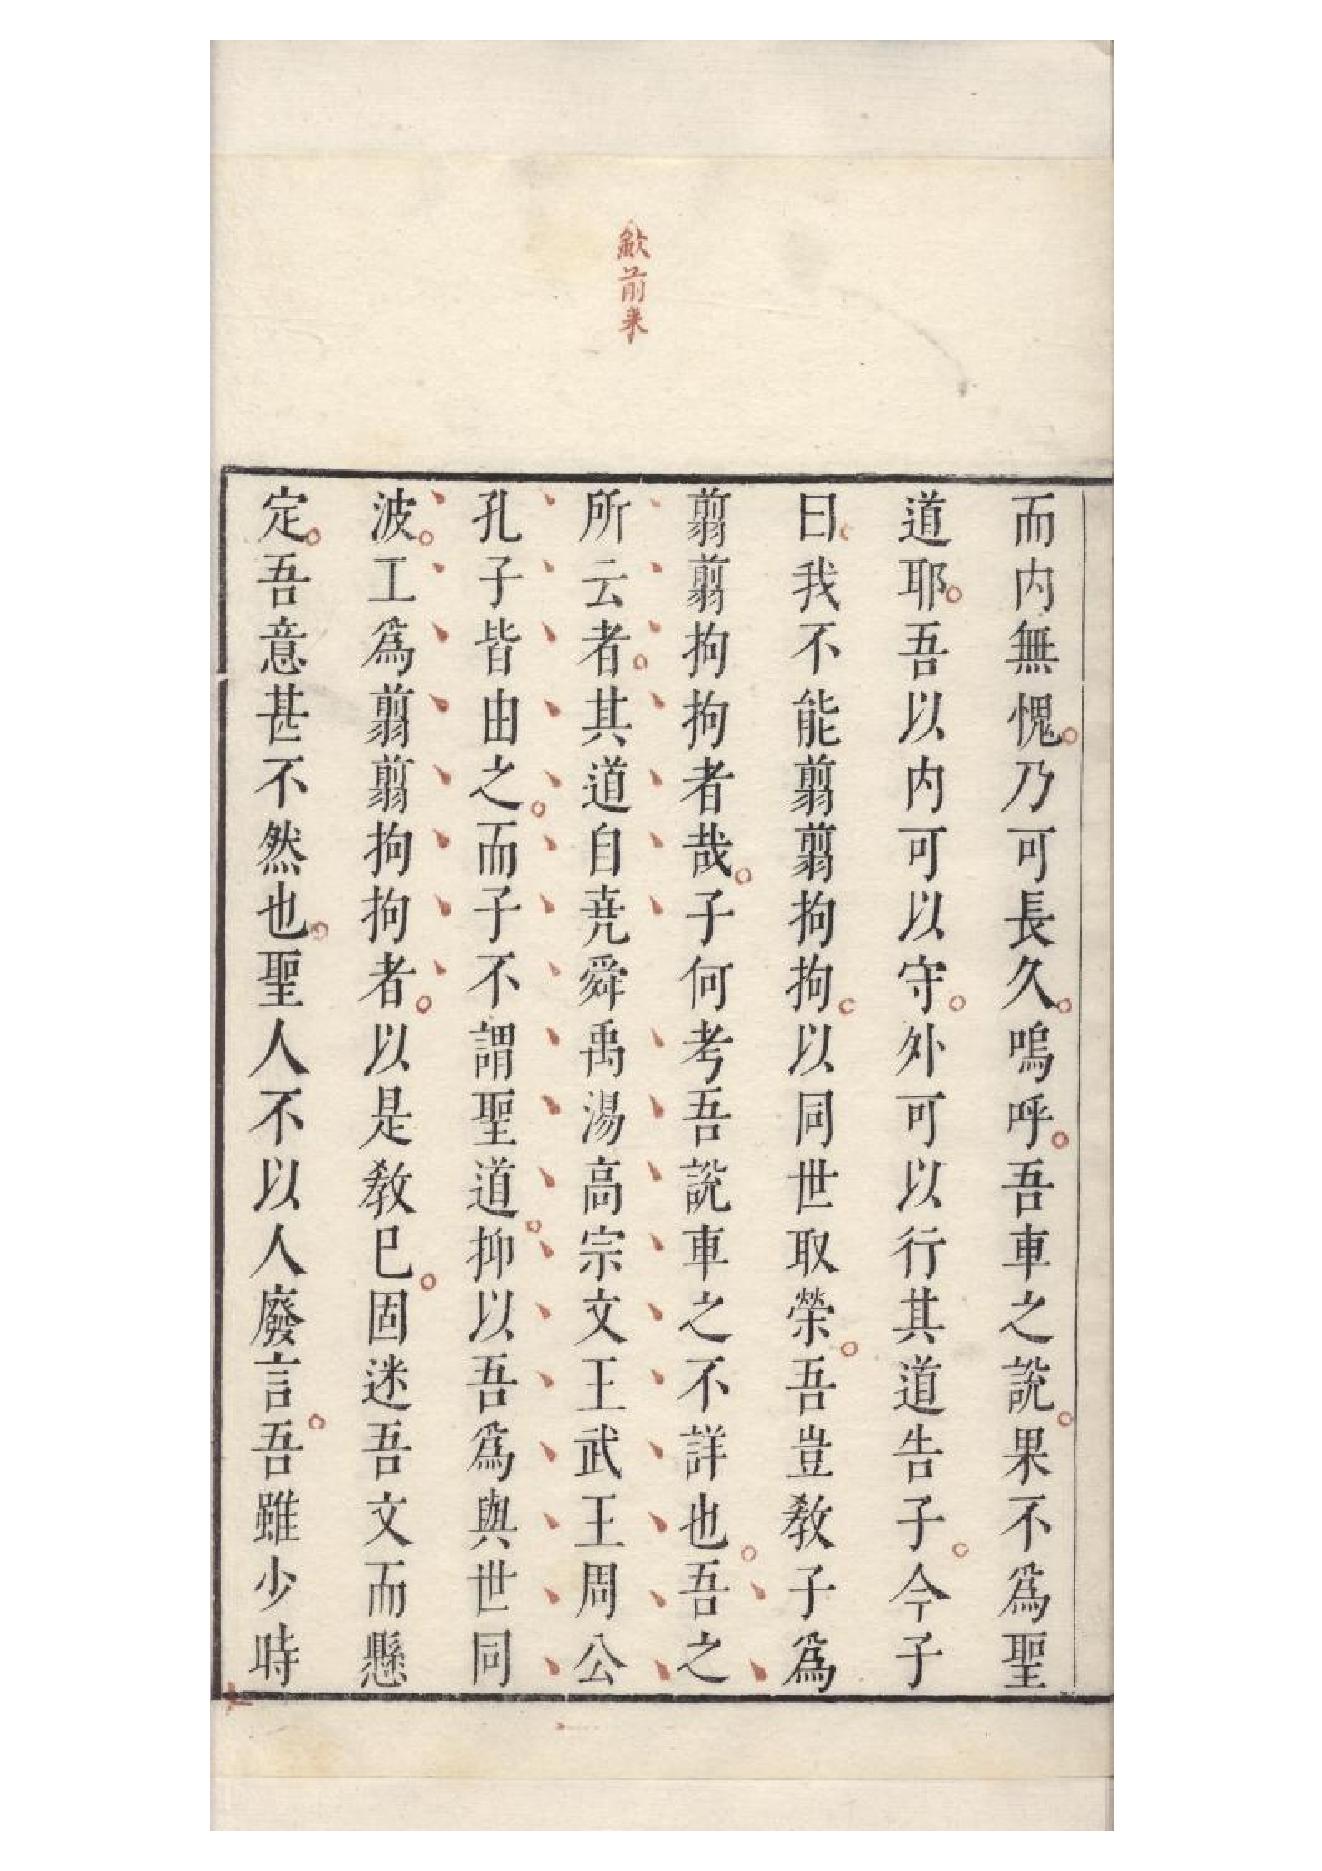 歛前來
而内無愧乃可長久嗚呼吾車之說果不爲聖
道耶吾以内可以守外可以行其道告子今子
曰我不能翦翦拘拘以同世取榮吾豈教子爲
翦翦拘拘者哉子何考吾說車之不詳也吾之
所云者其道自堯舜禹湯高宗文王武王周公
孔子皆由之而子不謂聖道抑以吾爲與世同
波工爲翦翦拘拘者以是教已固迷吾文而懸
定吾意甚不然也聖人不以人廢言吾雖少時